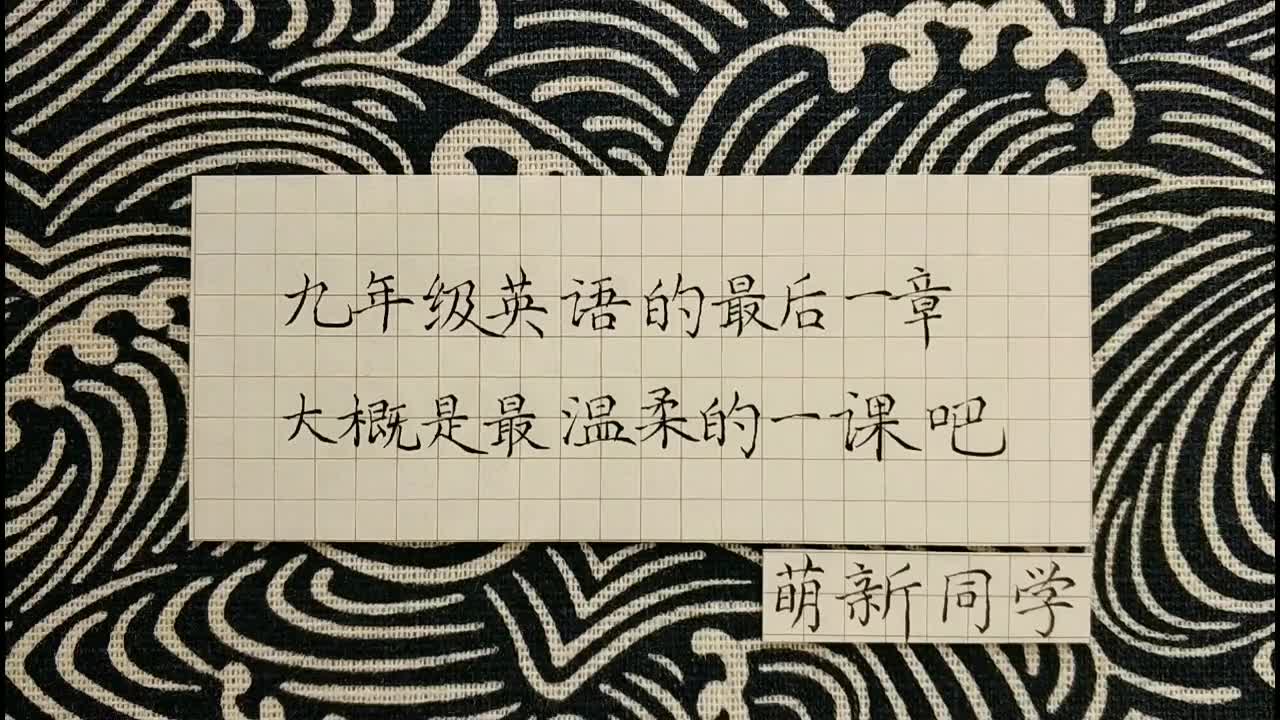 九年级英语的最后一章
大概是最温柔的一课吧
萌新同学